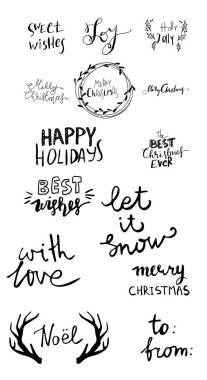 sweet
wishes
Joy
Holly
Jolly
Merry
Christmas
MERRY
CHRISTMAS
Merry Christmas
HAPPY
HOLIDAYS
The
BEST
Christmas
EVER
BEST
wishes
let
it
snow
with
love
merry
CHRISTMAS
Noël
to:
from: